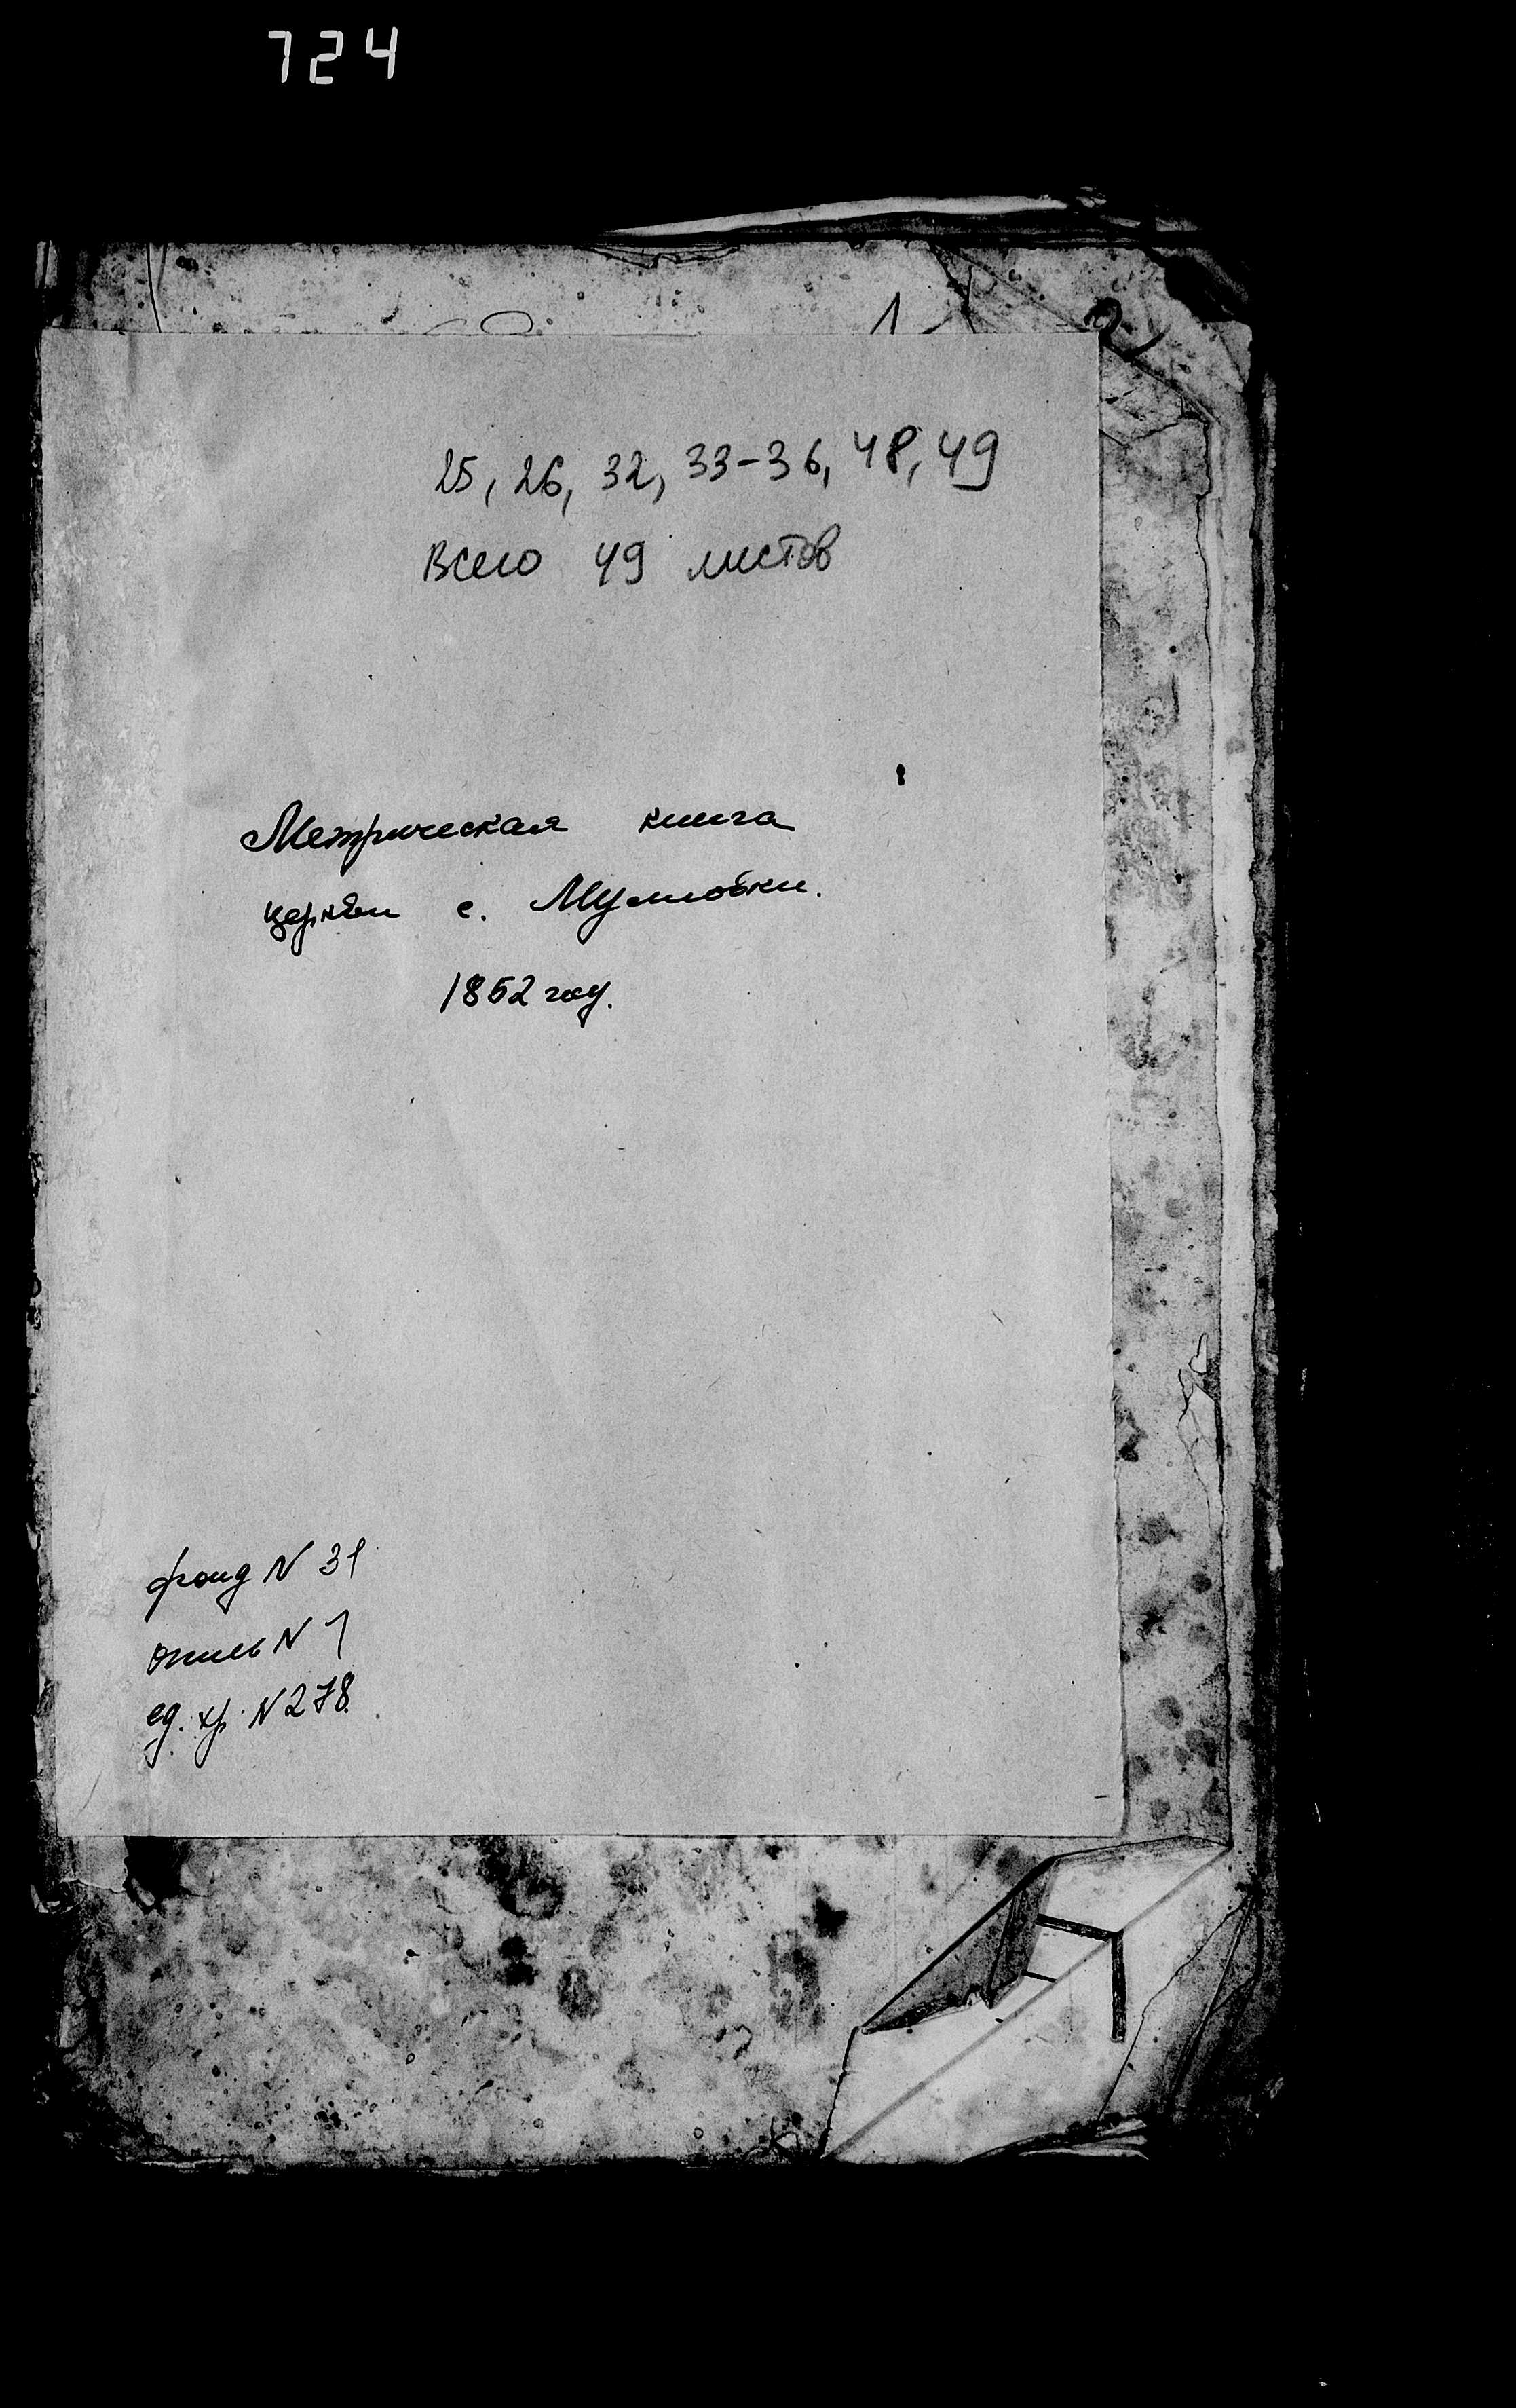 724
1
25, 26, 32, 33-36, 48, 49
Всего 49 листов
Метрическая книга
церкви с. Мулловки.
1852 году.
фонд N 31
опись N 1
ед. хр. N 278.